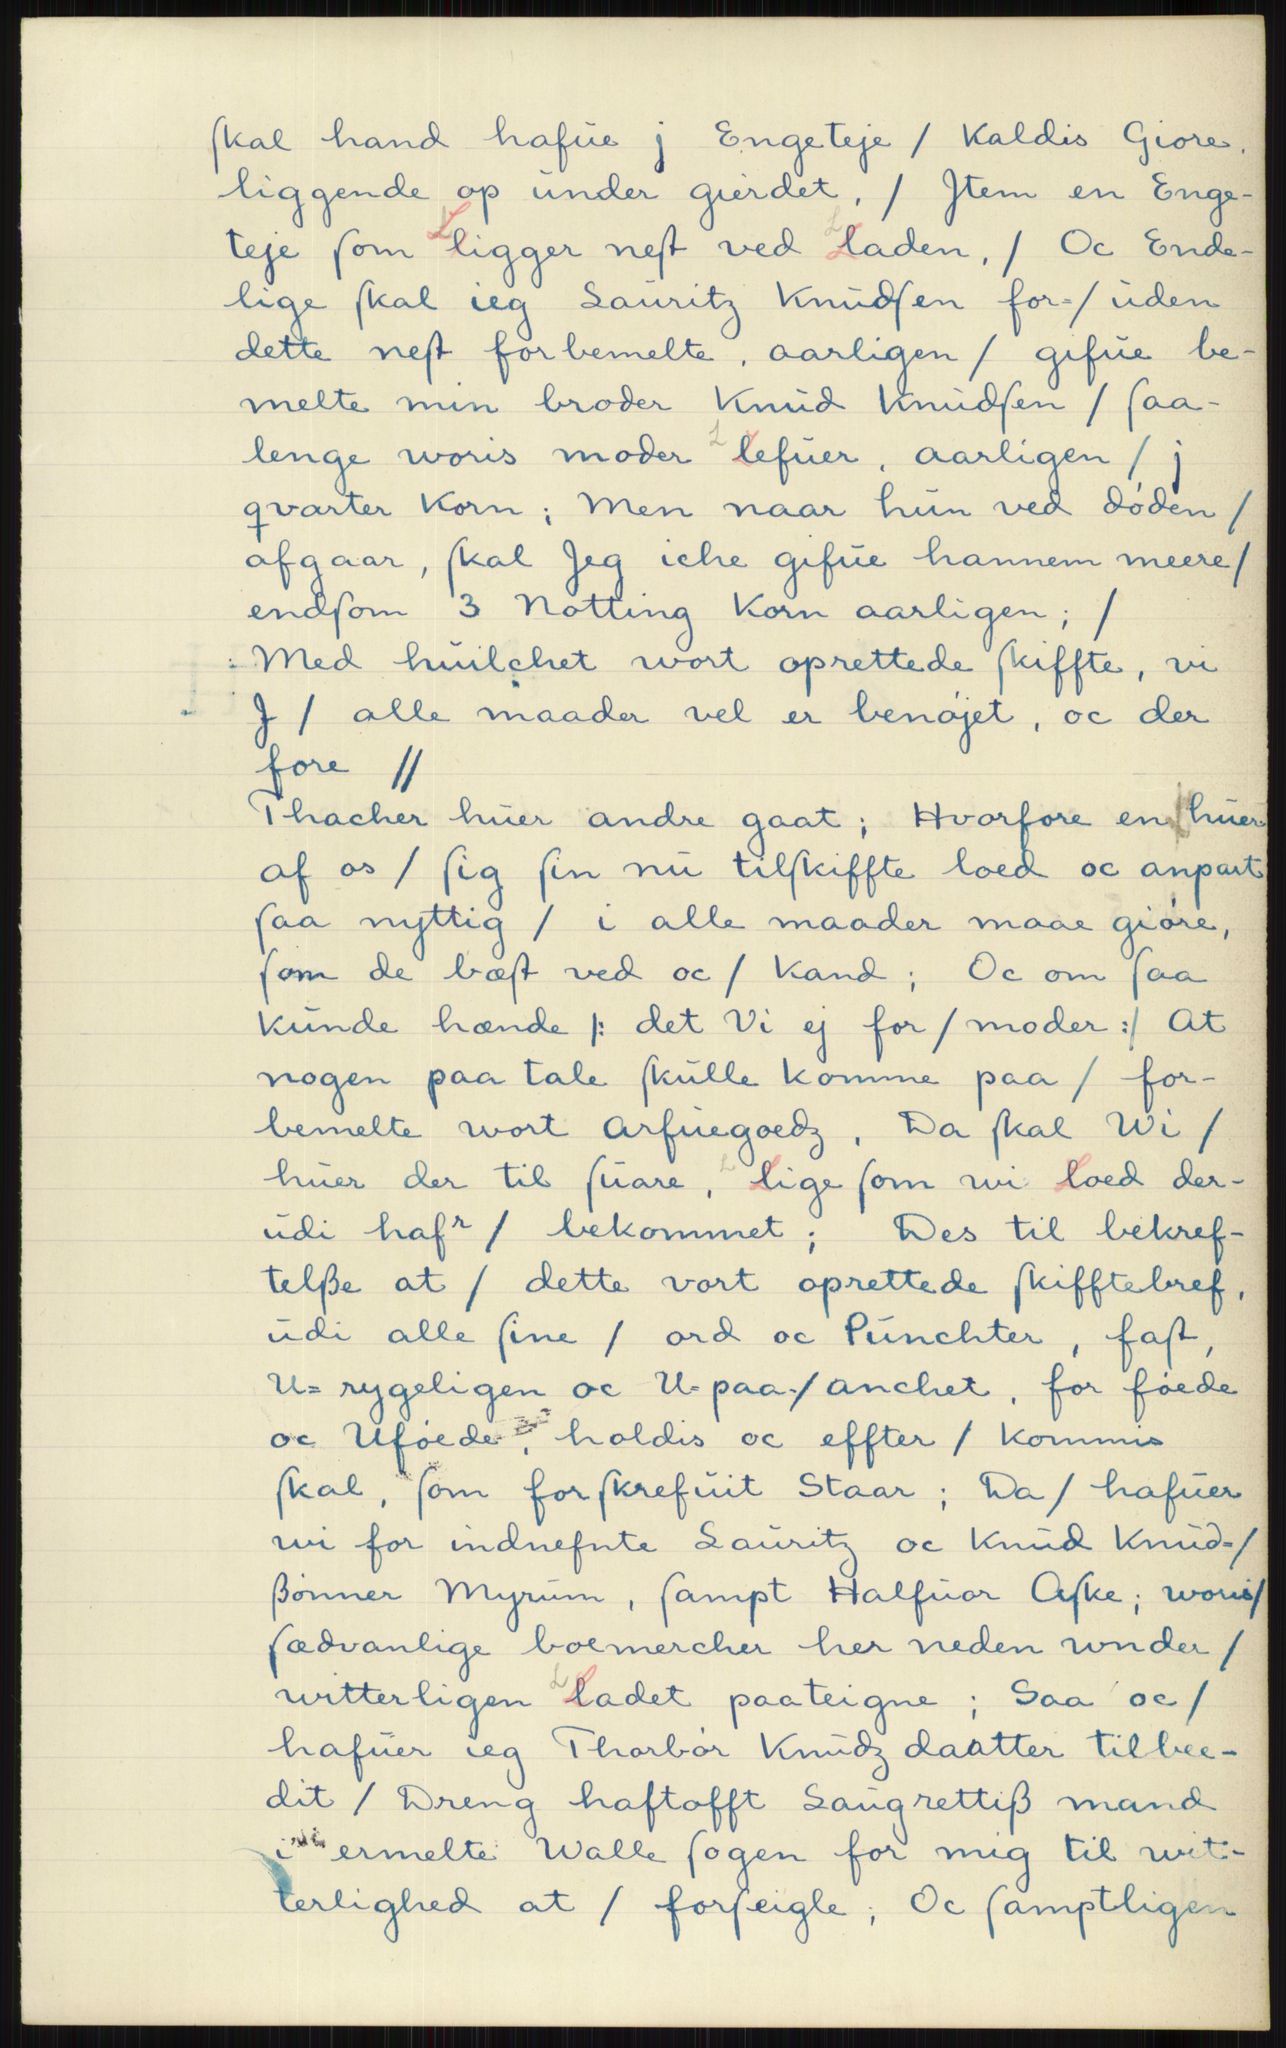 ſkal hand hafue j Engeteje / Kaldis Giore,
liggende op under gierdet, / Jtem en Enge-
teje ſom Ligger neſt ved Laden, / Oc Ende-
lige ſkal ieg Lauritz Knudſen for-/ uden
dette neſt forbemelte, aarligen / gifue be-
melte min broder Knud Knudſen / ſaa-
lenge woris moder Lefuer, aarligen / j
qvarter Korn; Men naar hun ved døden /
afgaar, ſkal Jeg iche gifue hannem meere /
endſom 3 Notting Korn aarligen; /
Med huilchet wort oprettede ſkiffte, vi
J / alle maader vel er benøjet, oc der
fore //
Thacher huer andre gaat; Hvorfore en huer
af os / ſig ſin nu tilſkiffte loed oc anpart
ſaa nyttig / i alle maader maae giøre,
ſom de bæſt ved oc / Kand; Oc om ſaa
Kunde hænde /: det Vi ej for / moder :/ At
nogen paa tale ſkulle Komme paa / for-
bemelte wort Arfuegoedz, Da ſkal Wi /
huer der til ſuare, Lige ſom wi Loed der-
udi hafr / bekommet; Des til bekref-
telße at / dette vort oprettede ſkifftebref,
udi alle ſine / ord oc Punchter, faſt,
U= rygeligen oc U-paa-/ anchet, for føede
oc Uføede, holdis oc effter / Kommis
ſkal, ſom forſkrefuit Staar; Da / hafuer
wi for indnefnte Lauritz oc Knud Knud-/
ßønner Myrum, ſampt Halfuor Aſke; woris /
ſædvanlige boemercher her neden wnder /
witterligen Ladet paateigne; Saa oc /
hafuer ieg Thorbør Knudz daatter tilbee-
dit / Dreng haftofft Laugrettiß mand
i ermelte Walle ſogen for mig til wit-
terlighed at / forſeigle; Oc ſamptligen